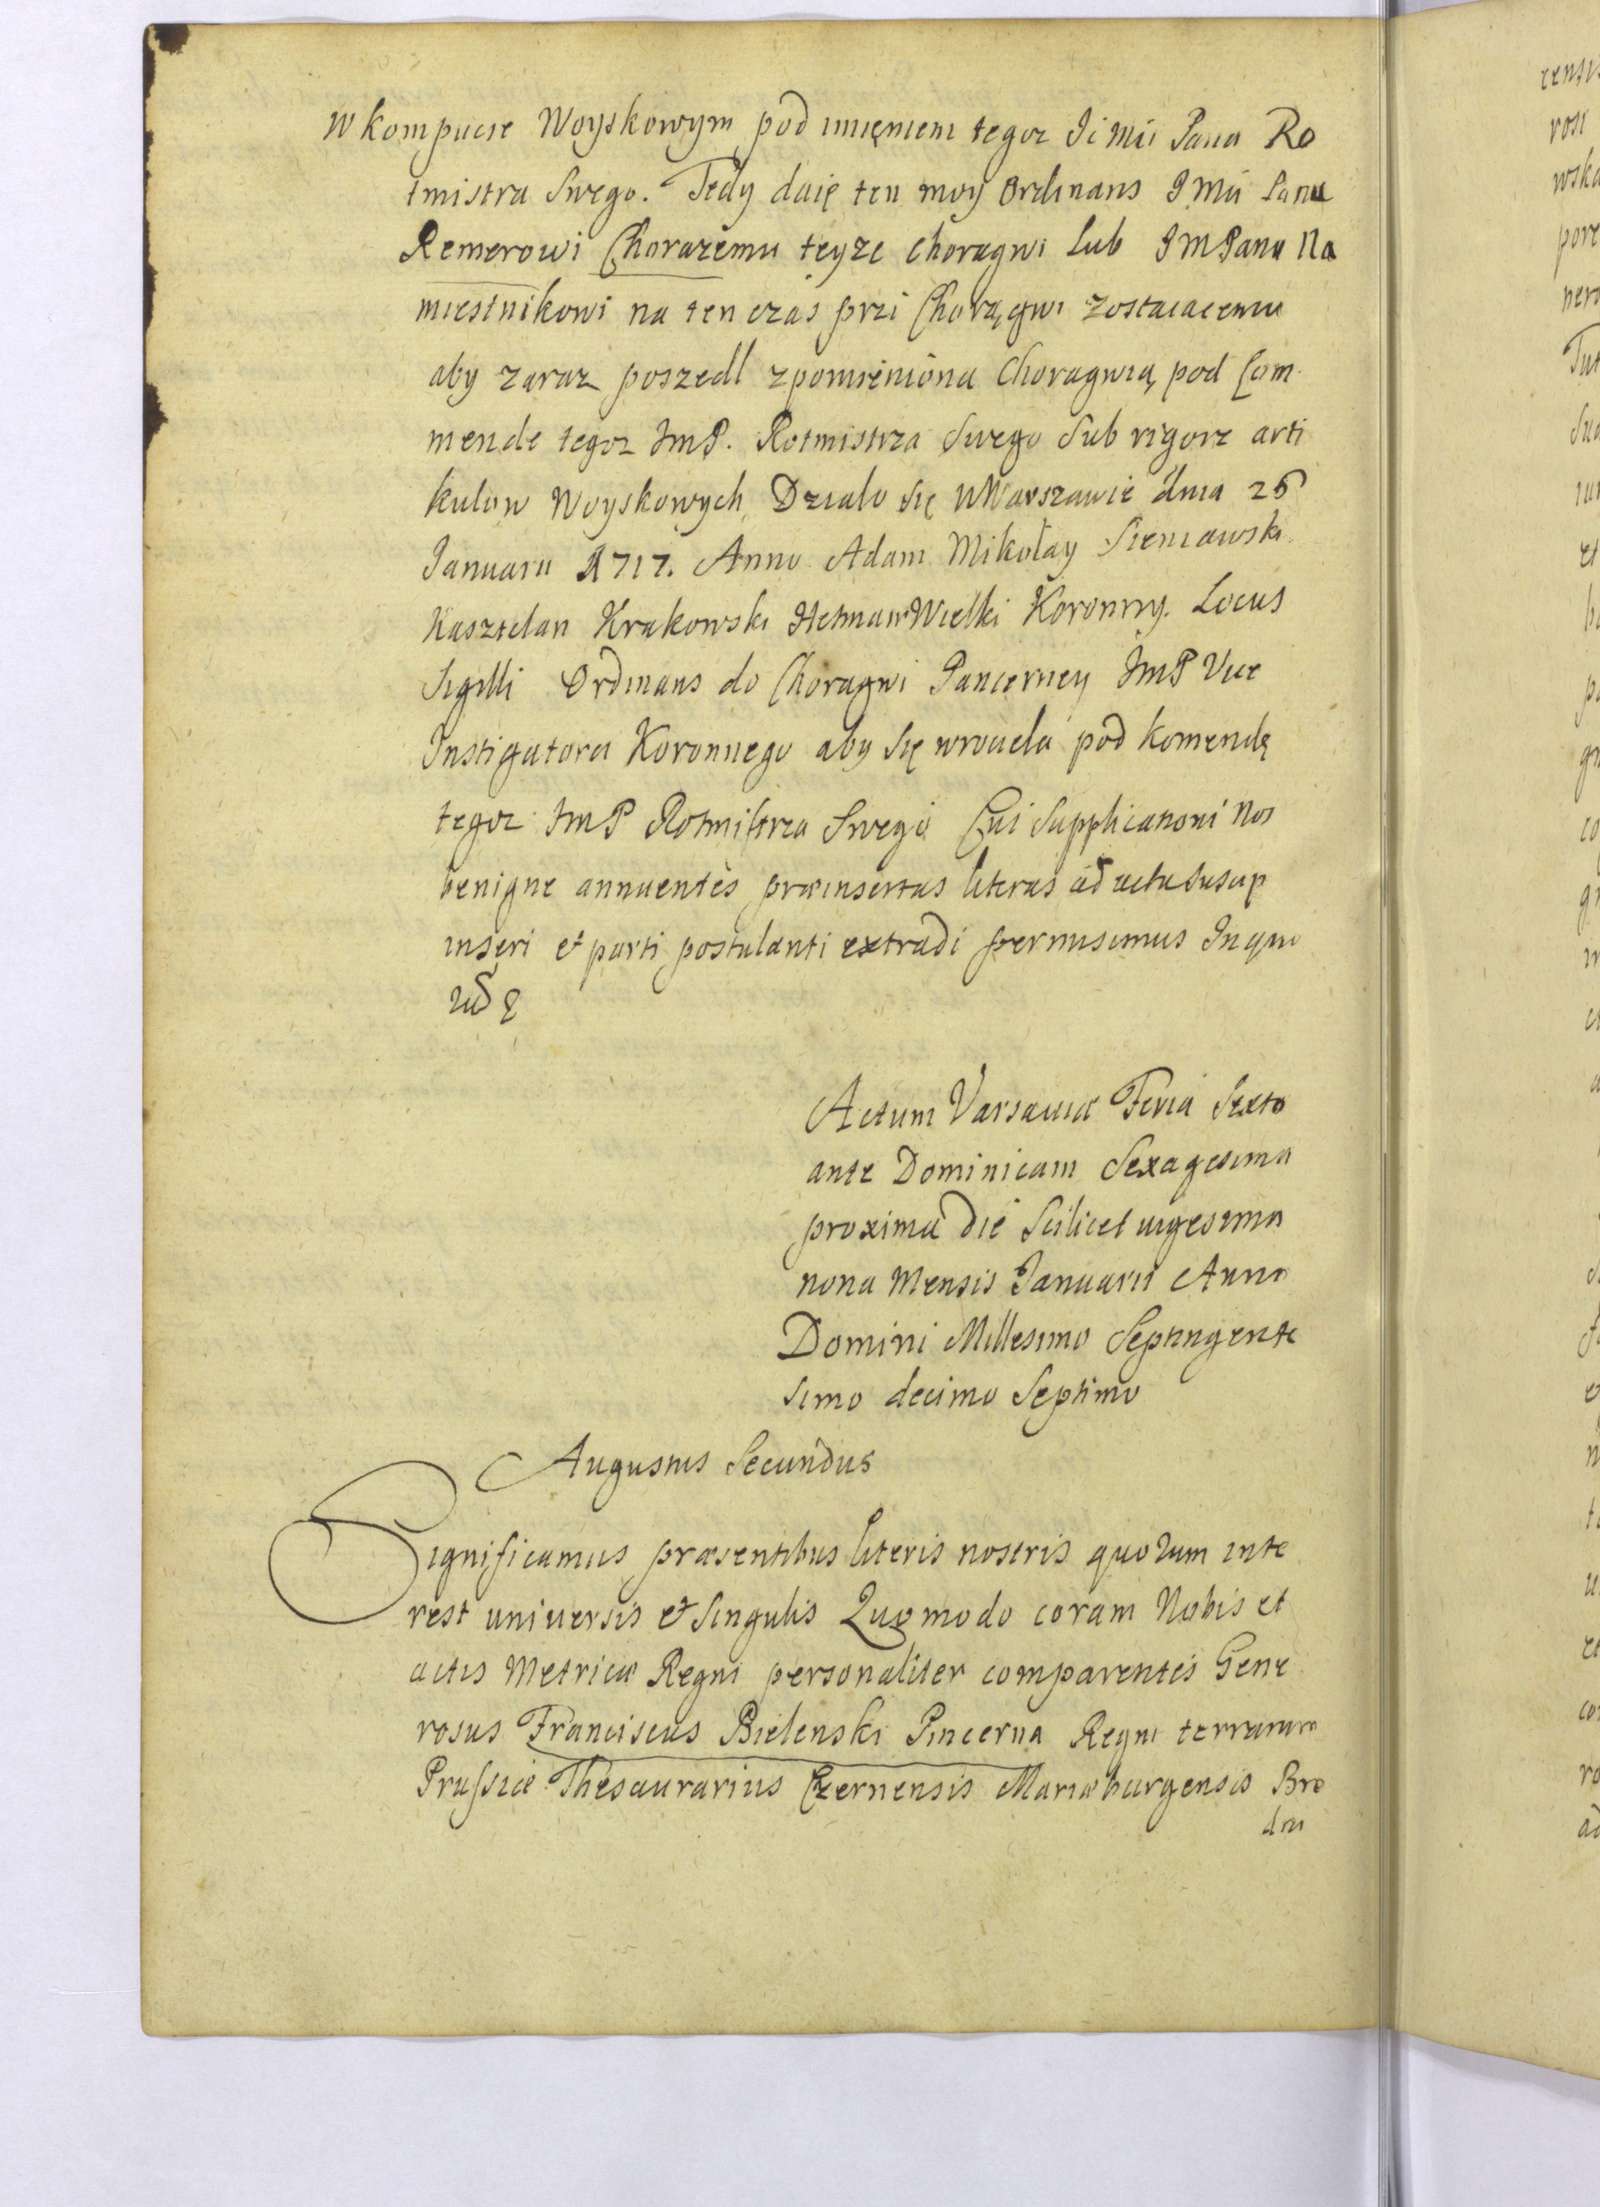 w kompucie Woyskowym pod imięniem tegoz Ji Mći Pana Ro
tmistra Swego. Tedy daię ten moy Ordinans J Mći Panu
Remerowi Chorazemu teyze choragwi lub JMPanu Na
miestnikowi na ten czas przi Chorągwi zostaiacemu
aby zaraz poszedl zpomieniona Choragwią pod Com
mende tegoz JmP. Rotmistrza Swego Sub rigore arti
kulow Woyskowych Dzialo się w Warszawie dnia 26
Januarii 1717. Anno Adam Mikołay Sieniawski
Kasztelan Krakowski Hetman Wielki Koronny. Locus
Sigilli Ordinans do Choragwi Pancerney JmP Vice
Instigatora Koronnego aby się wrocila pod komendę
tegoz JmP Rotmistrza Swego Cui Supplicationi Nos
benigne annuentes præinsertas literas ad acta suscip
inseri et parti postulanti extradi permisimus In quo
rū
Actum Varsaviæ Feria Sexta
ante Dominicam Sexagesima
proxima die Scilicet uigesima
nona Mensis Januarii Anno
Domini Millesimo Septingente
simo decimo Septimo
Augustus Secundus
Significamus præsentibus literis nostris quorum inte
rest universis et singulis Quomodo coram Nobis et
actis Metricæ Regni personaliter comparentes Gene
rosus Franciscus Bielenski Pincerna Regni terrarum
Prussiæ Thesaurarius Czernensis Mariæburgensis Bro
dni